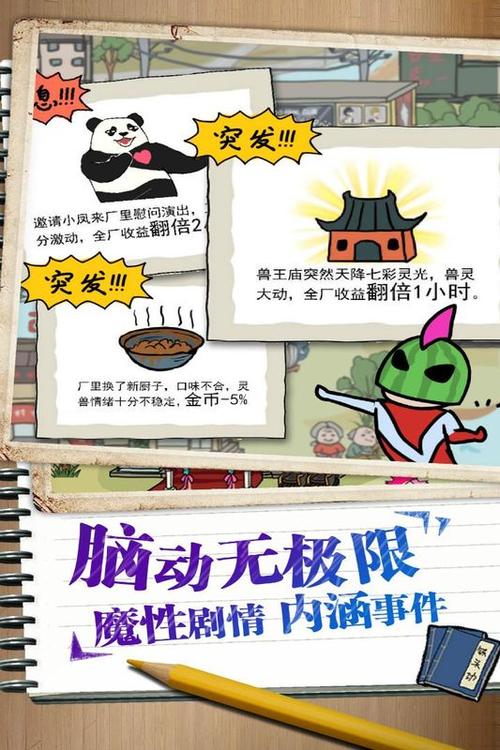 息!!!
突发!!!
邀请小凤来厂里慰问演出,
分激动,全厂收益翻倍2
兽王庙突然天降七彩灵光,兽灵
大动,全厂收益翻倍1小时。
突发!!!
厂里换了新厨子,口味不合,灵
兽情绪十分不稳定,金币-5%
脑动无极限
魔性剧情 内涵事件
铁头功